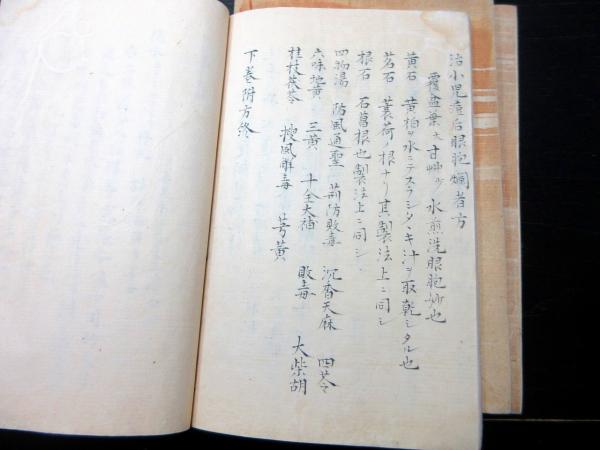 治小児痘后眼胞爛者方
覆盆葉大甘艸少水煎洗眼胞妙也
黄石 黄柏ヲ水ニテスラシタヽキ汁ヲ取乾シタル也
茗石 蓑荷ノ根ナリ其製法上ニ同シ
根石 石菖根也製法上ニ同シ
四物湯 防風通聖 荊防敗毒 沉香天麻 四苓
六味地黄 三黄 十全大補 敗毒 大柴胡
桂枝茯苓 搜風解毒 芎黄
下巻附方終